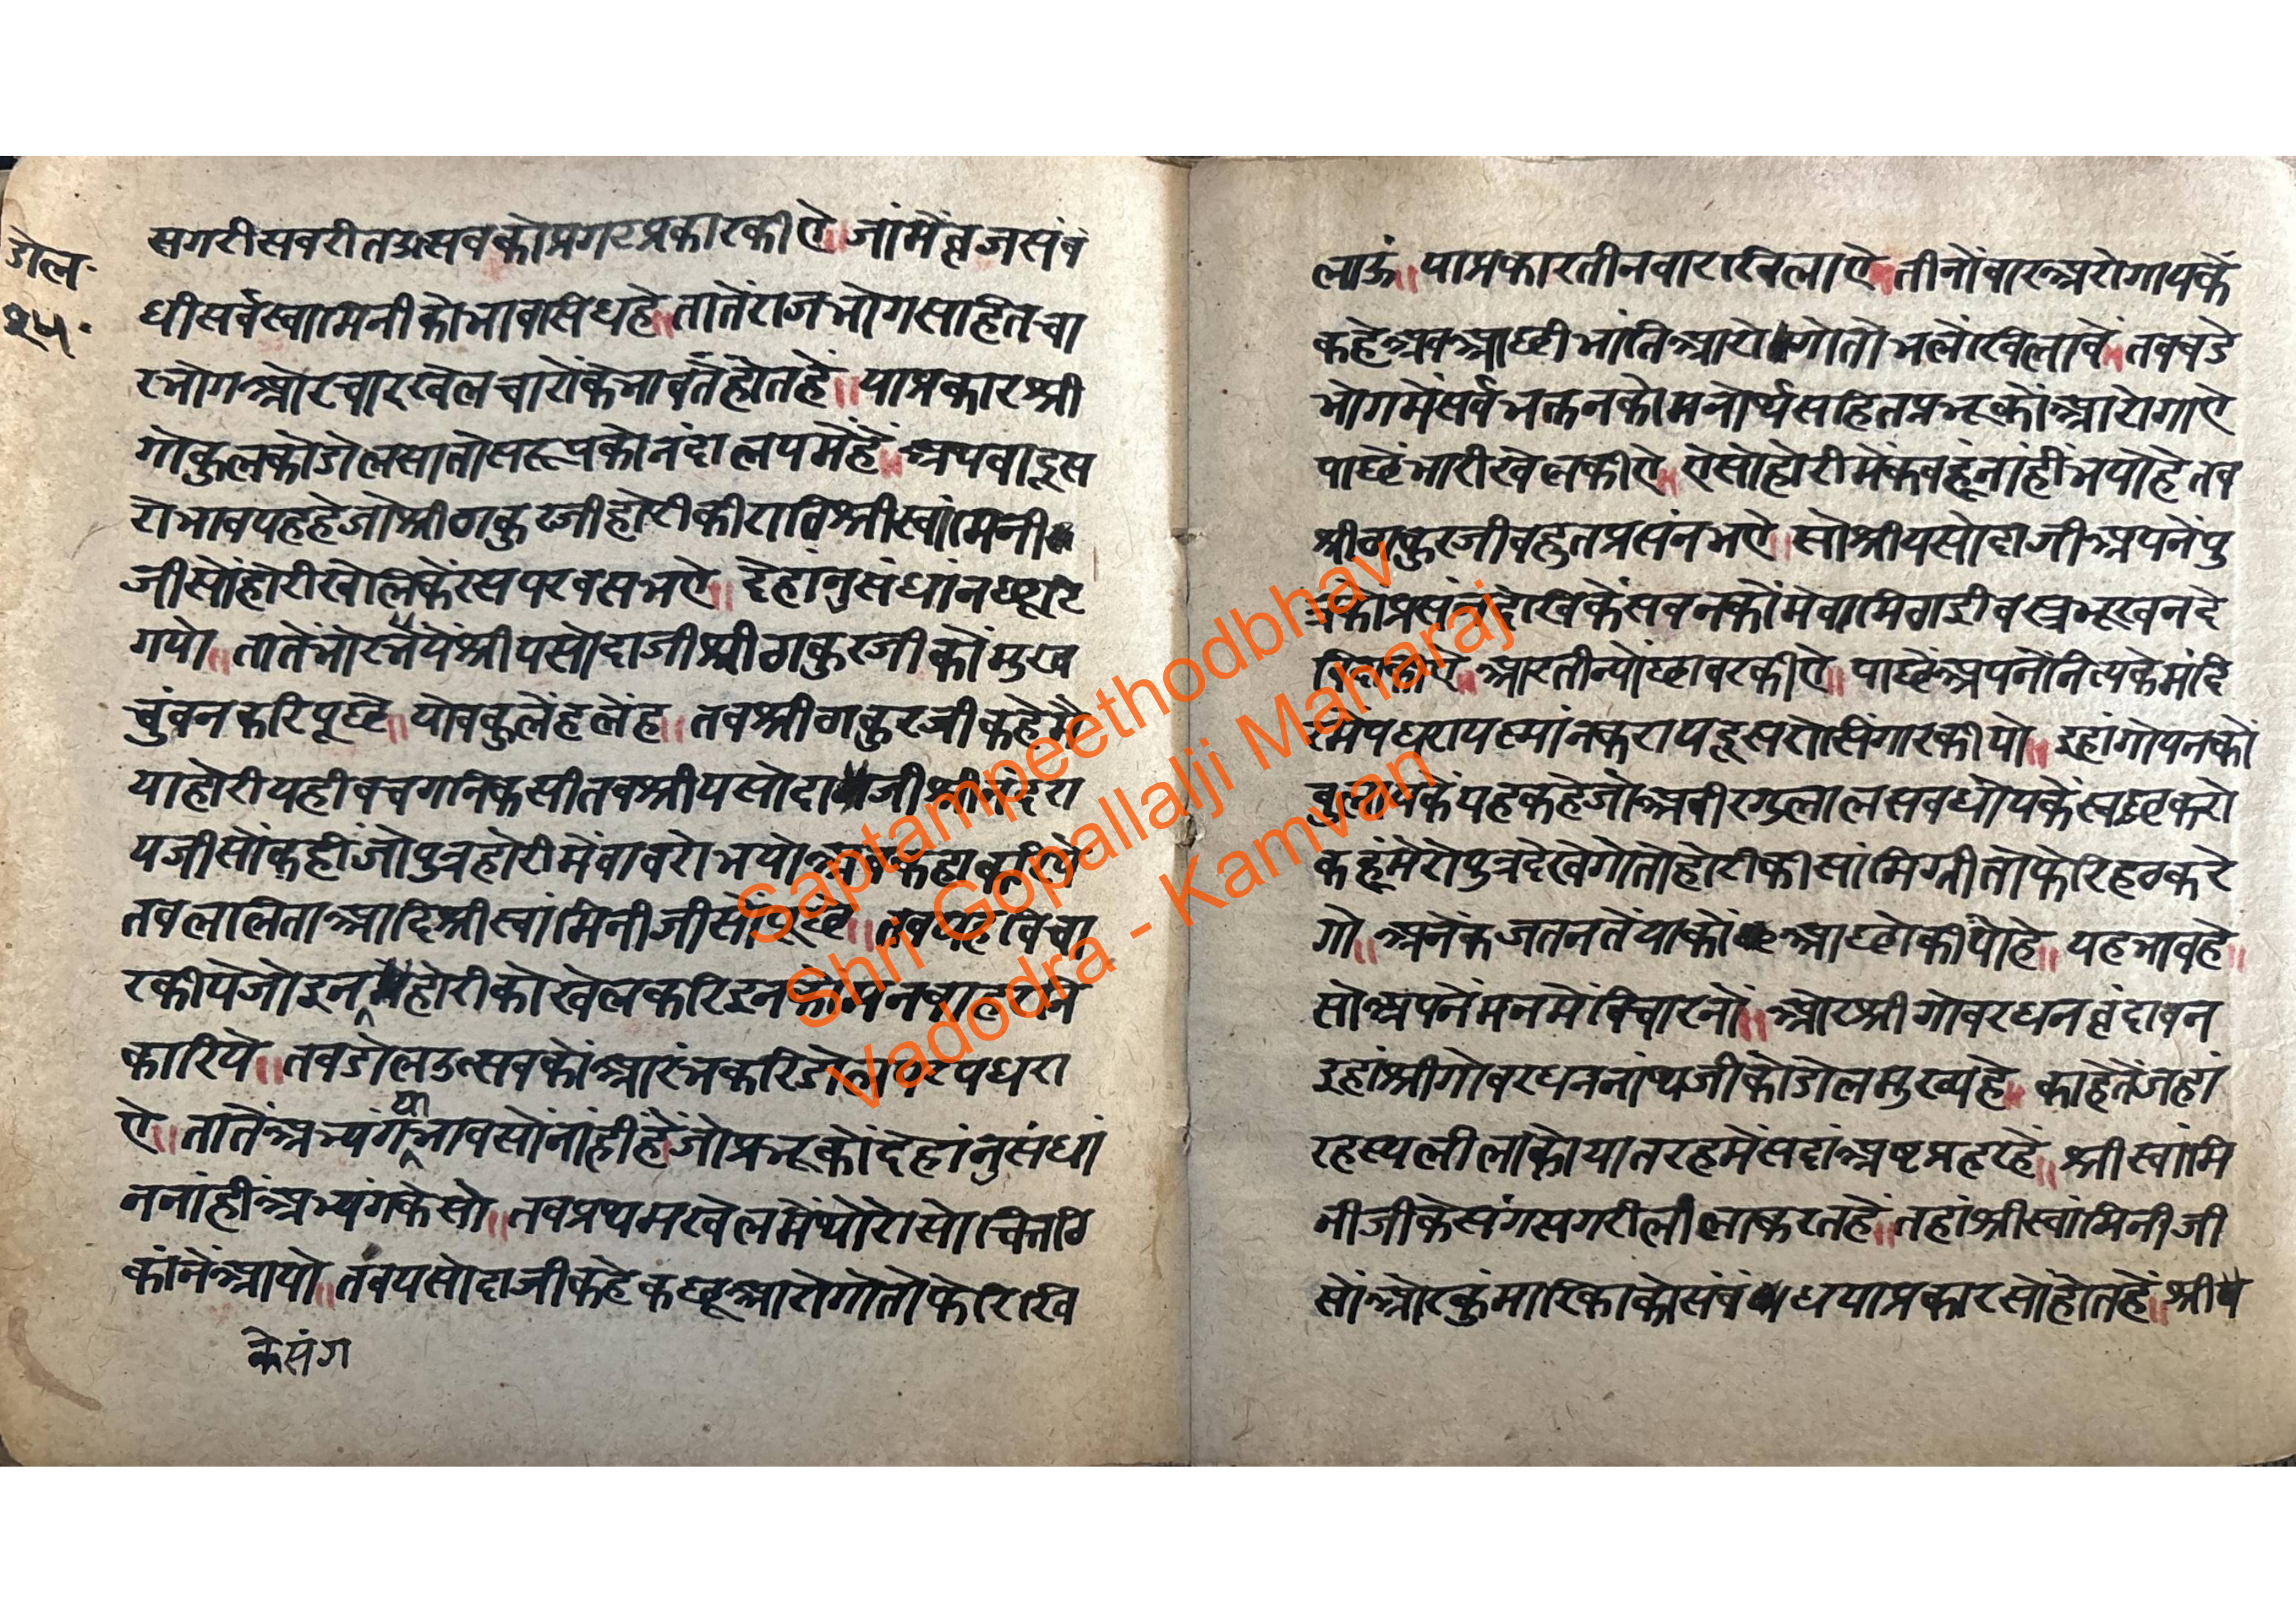 डोल.
२५.
सगरी सवरीत उत्सवको प्रगट प्रकार कीऐ॥ जांमें व्रज संबं
धी सर्व स्वामिनी को भाव सिध हे॥ तातें राजभोग सहित चा
र भोग और चार खेल चारों के भाव तें होत हें॥ या प्रकार श्री
गोकुल को डोल सातो सरूप को नंदालय में हें॥ अथवा दूस
रो भाव यह हे जो श्री ठाकुरजी होरी की रात्रि श्री स्वांमिनी
जी सों होरी खेलि कें रस परवस भऐ॥ देहांनुसंधांन छूटि
गयो॥ तातें भोर भयें श्री यसोदाजी श्री ठाकुरजी कों मुख
चुंवन करि पूछे॥ तव श्री ठाकुरजी कहे मै
या होरी यही तव श्री यसोदाजी श्री नंदरा
यजी सों कही जो पुत्र होरी में वावरो भयो
तव ललिता आदि श्री स्वांमिनीजी सों पूछे॥ तव यह विचा
र कीये जो इन होरी को खेल करि इन को मन
करिये॥ तव डोल उत्सव कों आरंभ करि डोल पधरा
ऐ॥ तातें अभ्यंग या भाव सों नांहीं हें जो प्रभू कों देहांनुसंधां
न नांहीं अभ्यंग केसो॥ तव प्रथम खेल में थोरो सो चित्त ठि
कांनें आयो॥ तव यसोदाजी कहे कछू आरोगो तो फेरि खि
के संग
लाऊं॥ या प्रकार तीन वार खिलाऐ॥ तीनों वार अरोगाय कें
कहे अव आछी भांति आरोगो तो भलें खिलावें॥ तव वडे
भोग में सर्व भक्तन को मनोर्थ सहित प्रभू कों आरोगाऐ
पाछें भारी खेल कीऐ॥ ऐसो होरी में कवहू नांहीं भयो हे तव
श्री ठाकुरजी वहुत प्रसंन भऐ॥ सो श्री यसोदाजी अपनें पु
त्र को प्रसंन देखि कें सवन कों मेवा मिठाई वस्त्र भूखन दे
आरती न्योंछावर कीऐ॥ पाछें अपनें नित्य के मंदि
र में पधराय स्नांन कराय दूसरो सिंगार कीयो॥ इहां गोपन कों
वुलाय कें यह कहे जो अवीर गुलाल सव धोय कें स्वछ करो
कहूं मेरो पुत्र देखेगो तो होरी की सांमिग्री तो फेरि हठ करे
गो॥ अनेक जतन तें या कों आछो कीयो हे॥ यह भाव हे॥
सो अपनें मन में विचारनों॥ और श्री गोवरधन व्रंदावन
इहां श्री गोवरधननांथजी को डोल मुख्य हे॥ काहे तें जहां
रहस्य लीला को यातरह में सदां अष्ट प्रहर हें॥ श्री स्वांमि
नीजी के संग सगरी लीला करत हें॥ तहां श्री स्वांमिनीजी
सों और कुंमारिका को संबंध या प्रकार सों होत हें॥ श्री
Saptampeethodbhav
Shri Gopallalji Maharaj
Vadodra - Kamvan